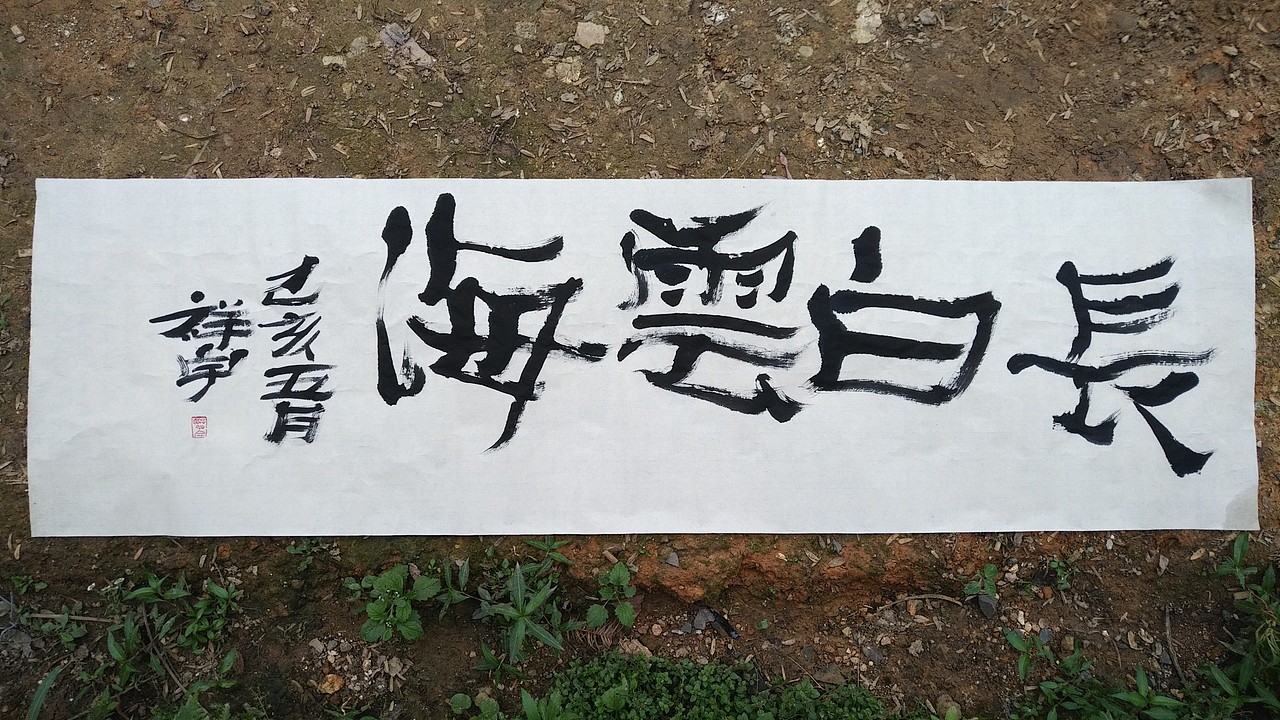 長白雲海
己亥五月
祥宇